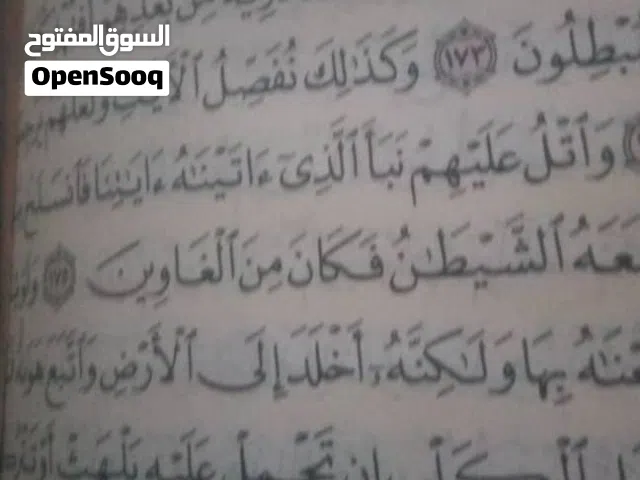 السوق المفتوح
OpenSooq
ـبطلون ١٧٣ وكذلك نفصل الـ
وٱتل عليهم نبأ ٱلذي ءاتينـه ءايـتنا فٱنسلخ
ـعه ٱلشيطـن فكان من ٱلغاوين ١٧٥
ـعنـه بها ولـكنه أخلد إلى ٱلأرض وٱتبع هو
إن تحمل عليه يلهث أو